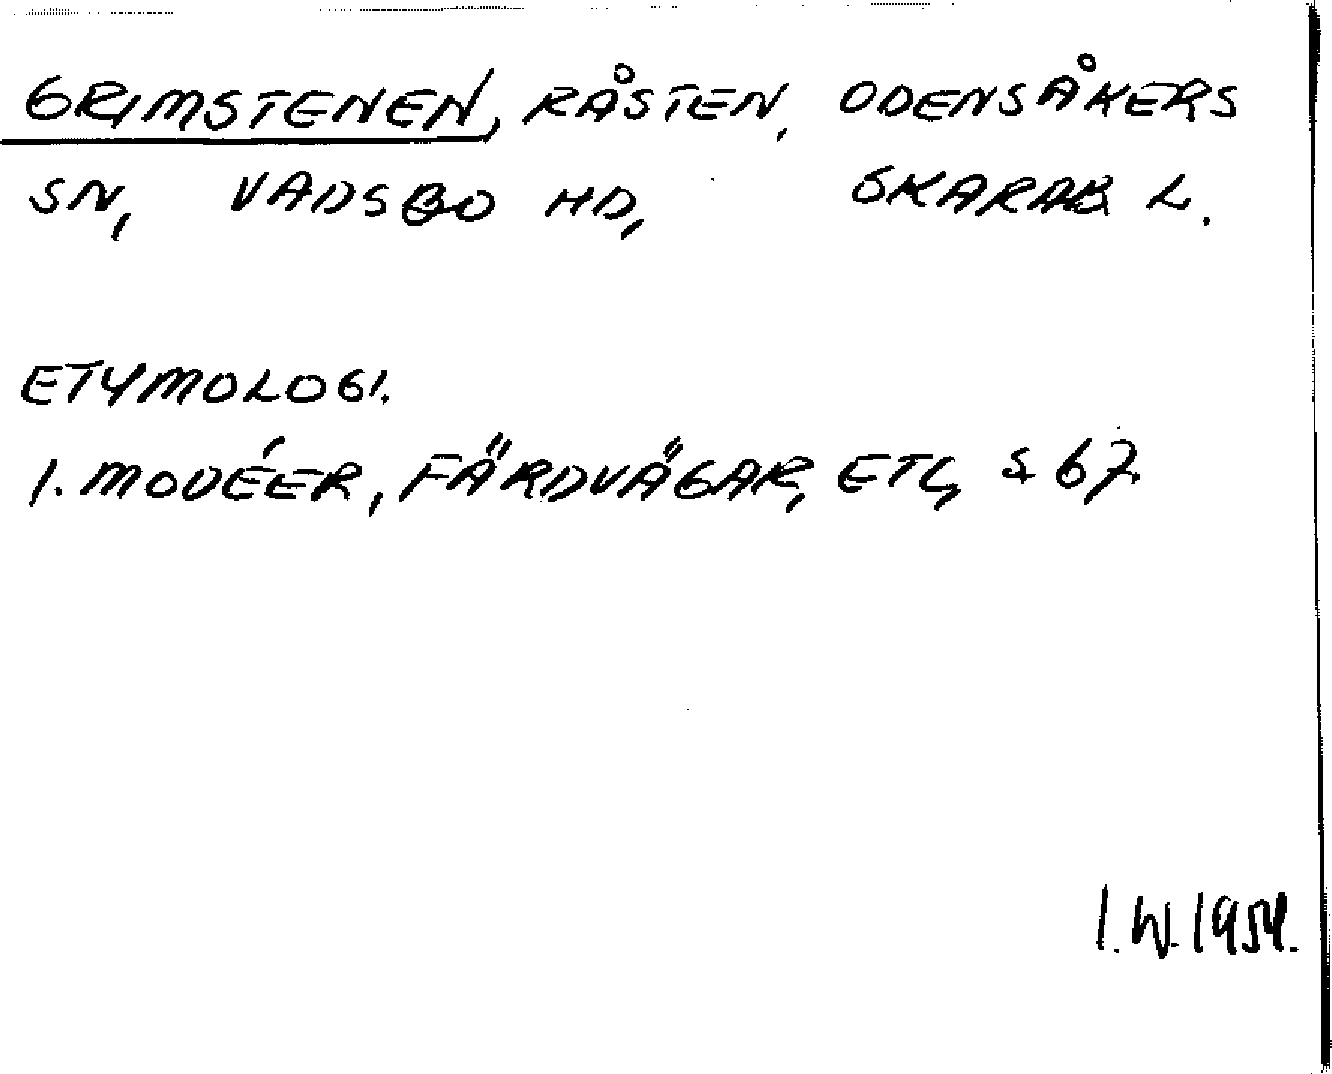 GRIMSTENEN, RÅSTEN, ODENSÅKERS
SN, VADSBO HD, SKARAB L.
ETYMOLOGI.
I. MODÉER, FÄRDVÄGAR, ETC, S 67.
I.W. 1954.